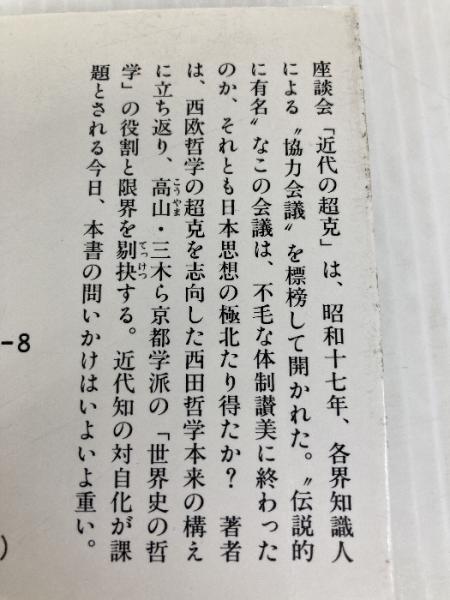 座談会「近代の超克」は、昭和十七年、各界知識人
による〝協力会議〟を標榜して開かれた。〝伝説的
に有名〟なこの会議は、不毛な体制讃美に終わった
のか、それとも日本思想の極北たり得たか？　著者
は、西欧哲学の超克を志向した西田哲学本来の構え
に立ち返り、高山・三木ら京都学派の「世界史の哲
こうやま
学」の役割と限界を剔抉する。近代知の対自化が課
てっけつ
題とされる今日、本書の問いかけはいよいよ重い。
-8
)